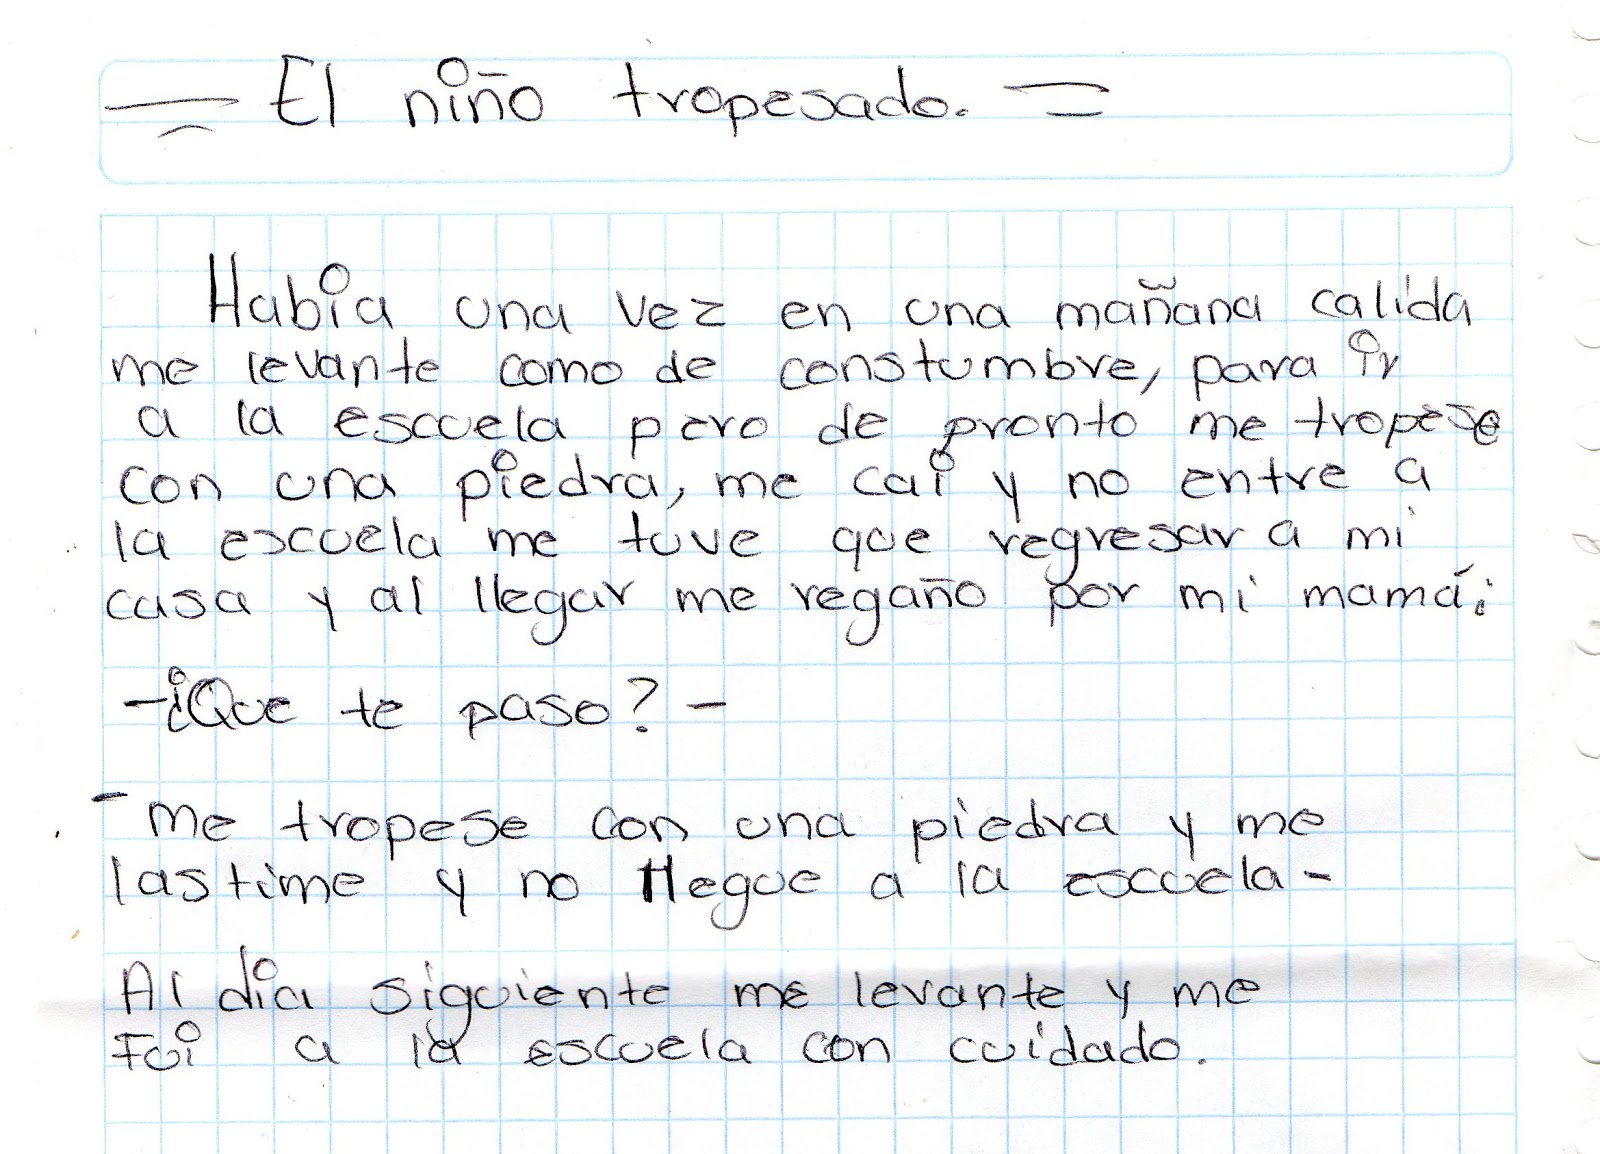 El niño tropesado.
Había una vez en una mañana calída
me levante como de constumbre, para ir
a la escuela pero de pronto me tropese
con una piedra, me cai y no entre a
la escuela me tuve que regresar a mi
casa y al llegar me regaño por mi mamá:
-¡Que te paso? -
- me tropese con una piedra y me
lastime y no llegue a la escuela -
Al día siguiente me levante y me
Fui a la escuela con cuidado.